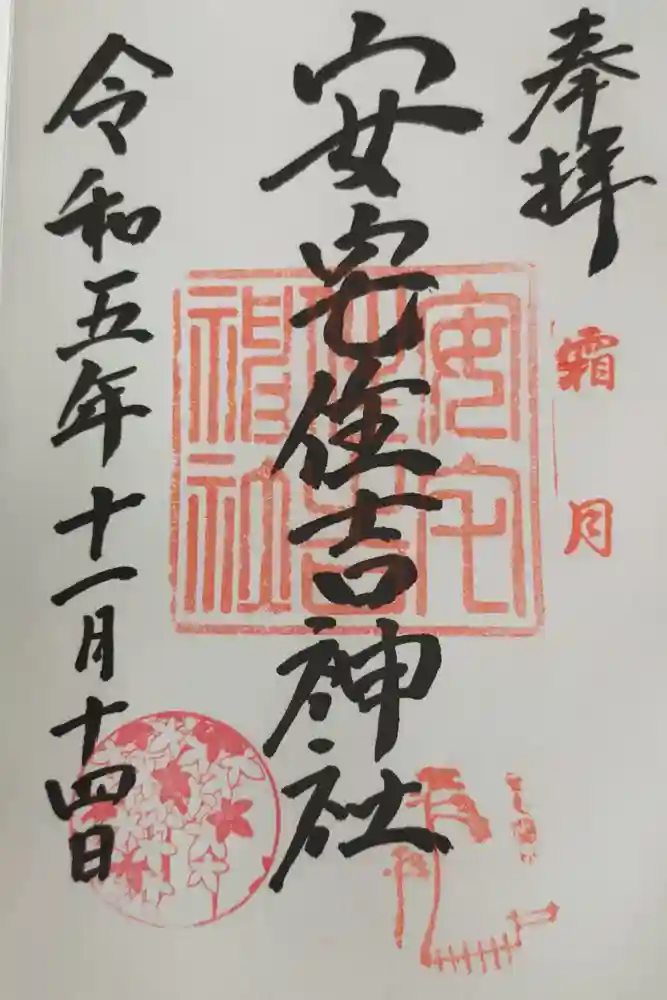 奉拝
霜月
安宅住吉神社
令和五年十一月十四日
安宅
住吉
神社